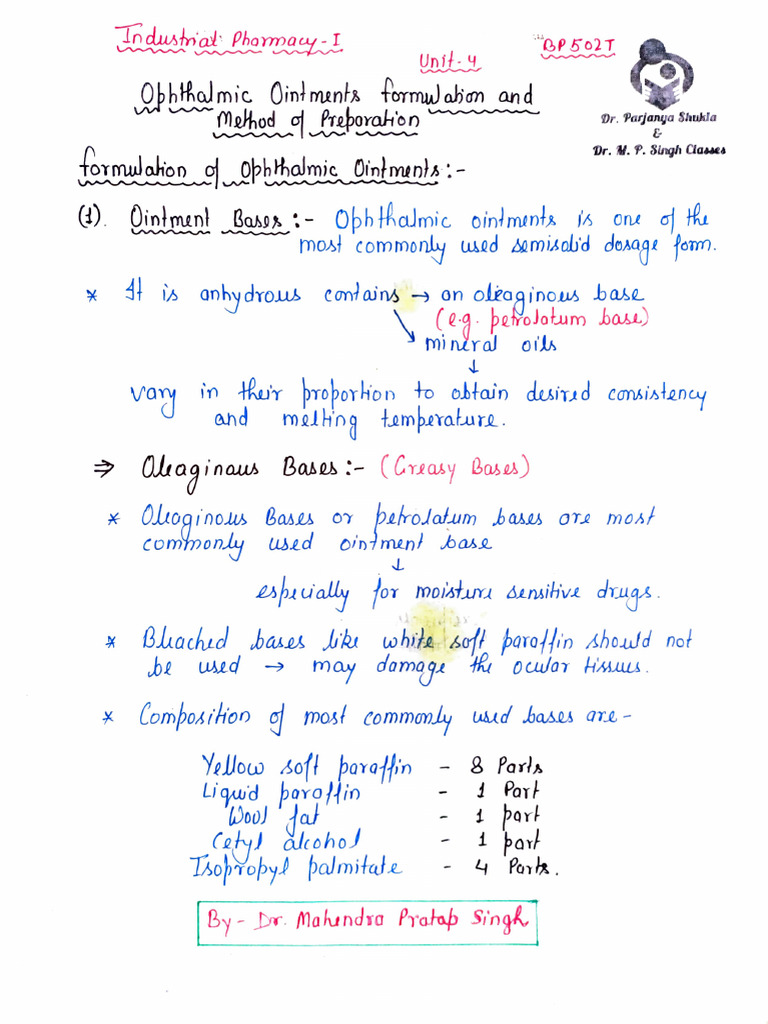 Industrial Pharmacy-I
BP502T
Unit-4
Ophthalmic Ointments formulation and
Method of Preparation
Dr. Parjanya Shukla
&
Dr. M. P. Singh Classes
formulation of Ophthalmic Ointments:-
(1). Ointment Bases:- Ophthalmic ointments is one of the
most commonly used semisolid dosage form.
* It is anhydrous contains → an oleaginous base
(e.g. petrolatum base)
↘ mineral oils
↓
vary in their proportion to obtain desired consistency
and melting temperature.
⇒ Oleaginous Bases:- (Greasy Bases)
* Oleaginous Bases or petrolatum bases are most
commonly used ointment base
↓
especially for moisture sensitive drugs.
* Bleached bases like white soft paraffin should not
be used → may damage the ocular tissues.
* Composition of most commonly used bases are-
Yellow soft paraffin - 8 Parts
Liquid paraffin - 1 Part
Wool fat - 1 part
Cetyl alcohol - 1 part
Isopropyl palmitate - 4 Parts.
By- Dr. Mahendra Pratap Singh